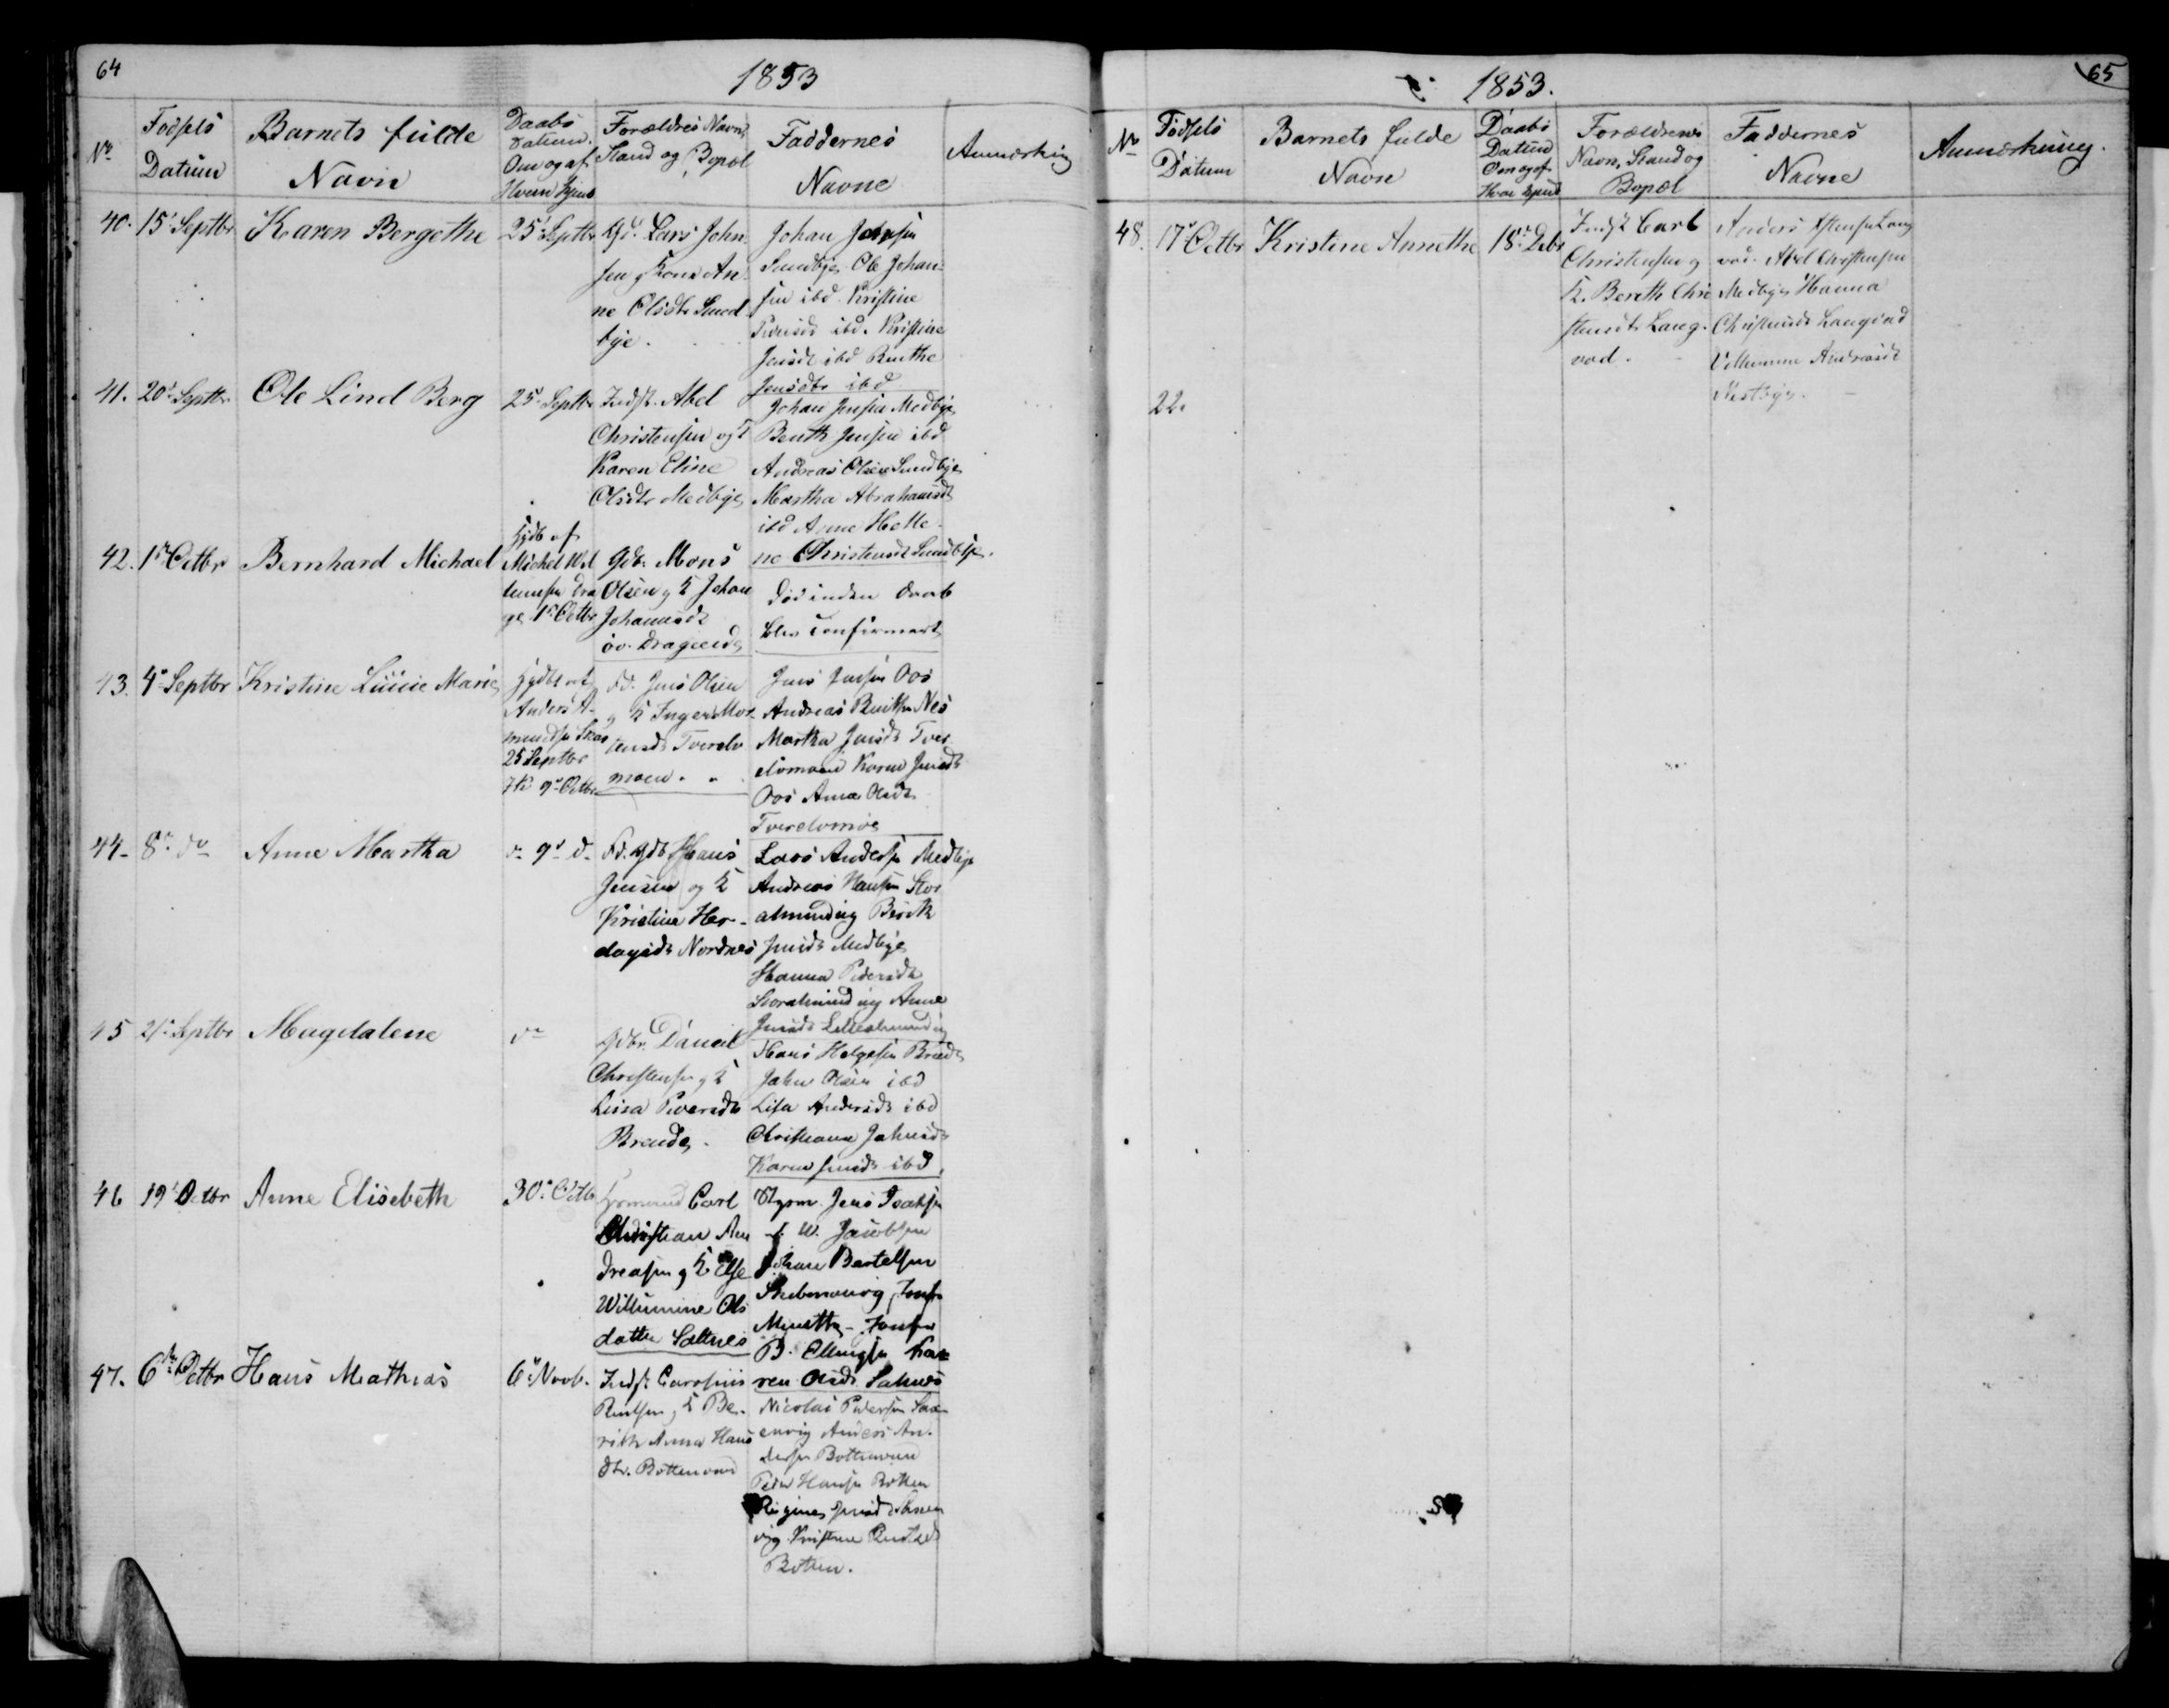 64
1853
No
Fødsels Datum
Barnets fulde Navn
Daabs Datum. Om og af Hvem hjemd
Forældres Navn, Stand og Bopæl
Faddernes Navne
Anmærkning
40. 15de Septbr Karen Bergethe 25de Septbr
Gd. Lars John-
sen g Kone An-
ne Olsdtr Sund-
bye.
Johan
Sundbye Ole Johan-
sen ibd. Kristine
Pedersdt ibd. Kristine
Jensdt ibd Benthe
Jensdtr ibd
41. 20de Septbr Ole Lind Berg 25de Septbr
Indst. Abel
Christensen og K
Karen Eline
Olsdtr Medbye
Johan Jensen Medbye
Benth Jensen ibd
Andreas Olsen Sundbye
Martha Abrahamsdt
ibd Anne Helle-
ne Christensdt Sundbye.
42. 1ste Octbr Bernhard Michael
Hjdb af
Michel Wil
lumsen Dra
ge 1ste Octbr
Gdb. Mons
Olsen g K Johan
Johannesdt
øv. Drageid
Død inden Daab
blev Confirmert
43. 4de Septbr Kristine Lucie Marie
Hjdbt af
Anders A-
mundsen
25 Septbr
iK 9de Octbr
Fd. Jens Olsen
g K Inger Mor-
tensdt Tverelv
moen.
Jens Jensen Oos
Andreas Benthsen Nes
Martha Jensdt Tver
elvmoen Karen Jensdt
Oos Anna Olsdt
Tverelvmoe
44. 8de do Anne Martha do 9de do
Fd. Gdb Hans
Jensen og K
Kristine Her-
dagsdt Nordnes
Lars Andersen Medbye
Andreas Hansen Stor
alminding Berith
Jensdt Medbye
Hanna Pedersdt
Storalminding Anne
Jensdt Lillealminding
45 21de Septbr Magdalene do
Gdbr. Daniel
Christensen g K
Lisa Pedersdt
Brends.
Hans Helgesen Brends
John Olsen ibd
Lisa Andersdt ibd
Christianna Johnsdt
Karen Jensdt ibd.
46 19de Octbr Anne Elisebeth 30de Octb
Carl
Christian An
dreasen g K Else
Willumine Ols
datter Saltnes
Styrm. Jens Isaksen
W. Jacobsen
Johan Bartelsen
Jomfr
Jomfru
B. Ellingsen Ka-
ren Olsdt. Saltnes
47. 6te Octbr Hans Mathias 6te Novb.
Indst.
Bentsen g K Be-
rith Anna Hans
dtr. Bottenvand
Nicolai Pedersen Sax-
envig Anders An-
dersen Bottenvand
Peder Hansen Botten
Regine Jensd Saxen
vig Kristine
Botten.
65
1853.
No
Fødsels Datum
Barnets fulde Navn
Daabs Datum Om og af Hvem hjemd
Forældrenes Navn, Stand og Bopæl
Faddernes Navne
Anmærkning.
48. 17de Octbr Kristine Annethe 18de Debr
Indst Carl
Christensen g
K. Bereth Chri
stensdtr Lang-
vad.
Anders Lang
vad. Abel Christensen
Medbye Hanna
Christensdt Langvad
Villumine Andreasdt
Vestbye.
22.